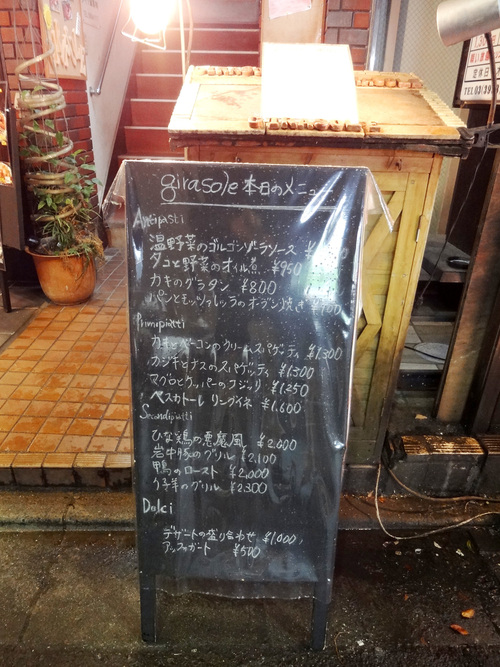 girasole 本日のメニュー
Antipasti
温野菜のゴルゴンゾーラソース
タコと野菜のオイル煮 ¥950
カキのグラタン ¥800
パンとモッツァレッラのオーブン焼き
Primopiatti
カキとベーコンのクリームスパゲッティ ¥1,300
カジキとナスのスパゲッティ ¥1,300
マグロとケッパーのフジッリ ¥1,250
ペスカトーレ リングイネ ¥1,600
Secondipiatti
ひな鶏の悪魔風 ¥2,000
岩中豚のグリル ¥2,100
鴨のロースト ¥2,000
仔羊のグリル ¥2,300
Dolci
デザートの盛り合わせ ¥1,000
アッフォガート ¥500
定休日